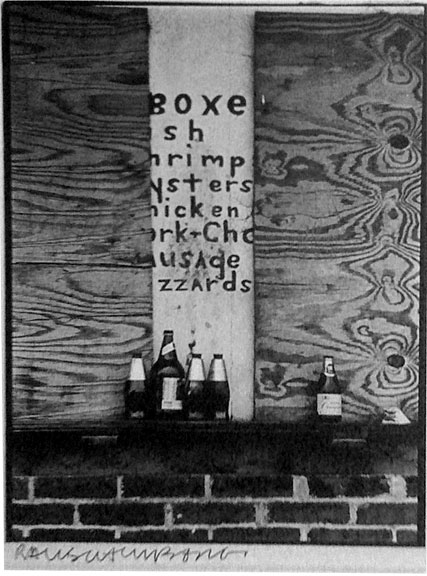 BOXE
ish
hrimp
ysters
hicken
ork+Cho
ausage
zzards
RAUSCHENBERG